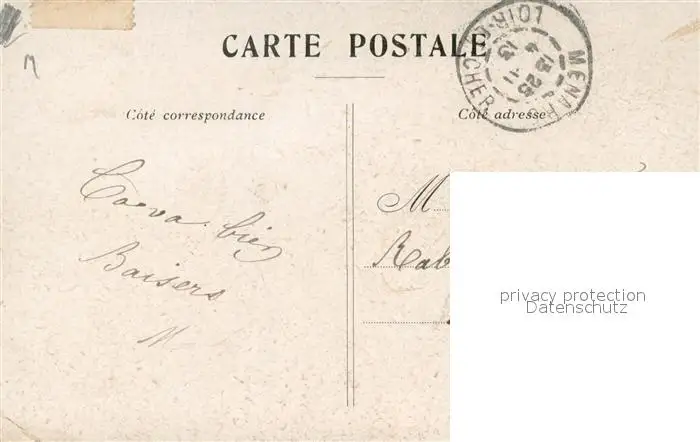 CARTE POSTALE
LOIR-
CHER
MENAR
Côté correspondance
Côté adresse
Ça va bien
Baisers
M
M
Rab
privacy protection
Datenschutz